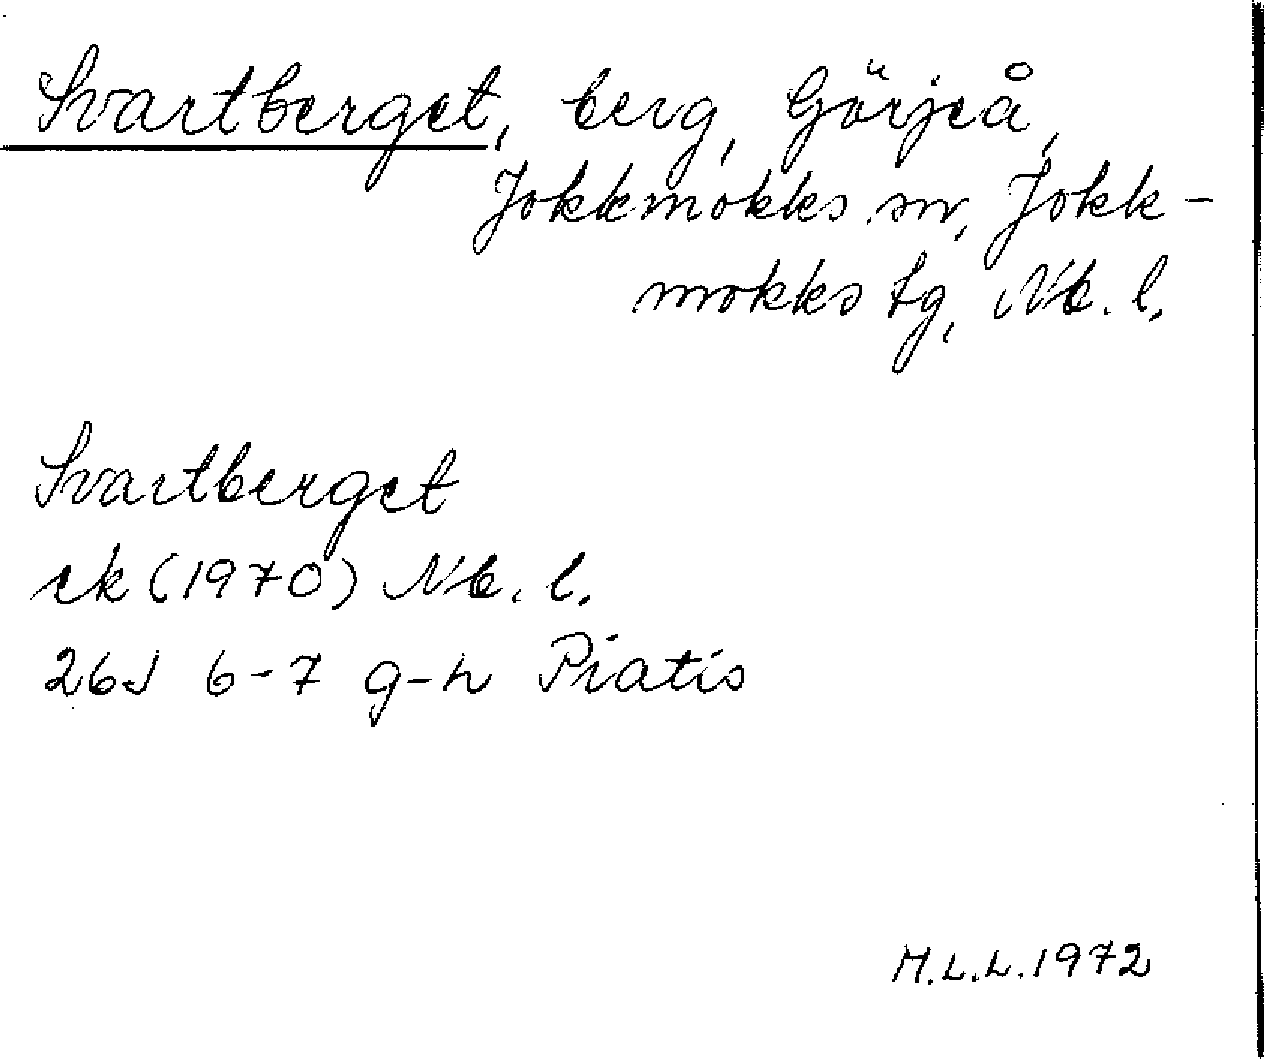 Svartberget, berg, Görjeå,
Jokkmokks sn, Jokk-
mokks tg, Nb. l.
Svartberget
ek (1970) Nb. l.
26J 6-7 g-h Piatis
M.L.L. 1972